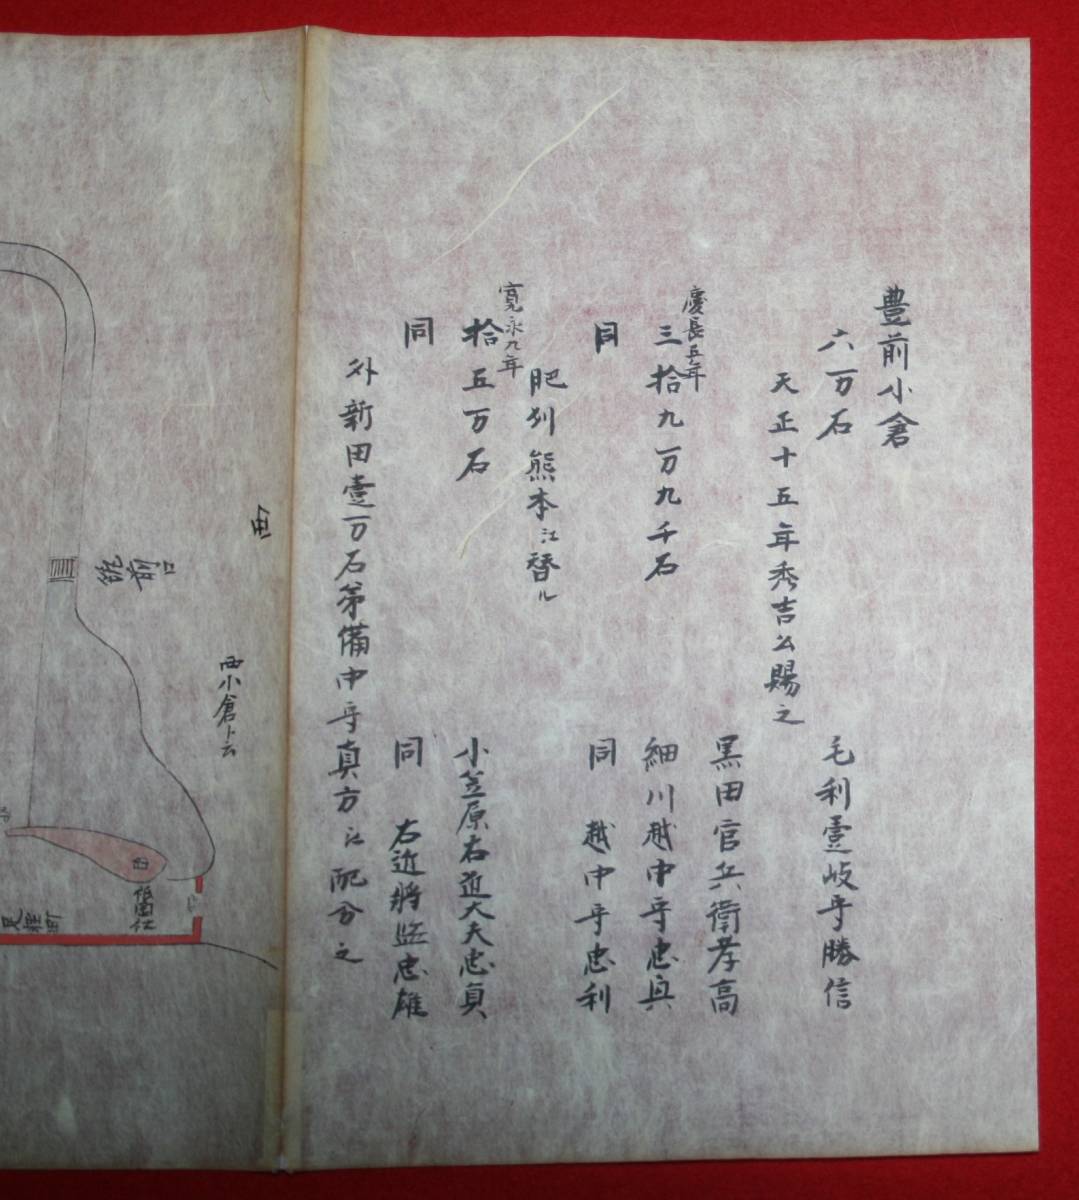 豊前小倉
六万石　毛利壹岐守勝信
天正十五年秀吉公賜之
黒田官兵衛孝高
慶長五年
三拾九万九千石　細川越中守忠興
同　同　越中守忠利
肥列熊本江替ル
寛永九年
拾五万石　小笠原右近大夫忠貞
同　同　右近將監忠雄
外新田壹万石弟備中守真方江配分之
西
筑前口
西小倉ト云
田
足軽町